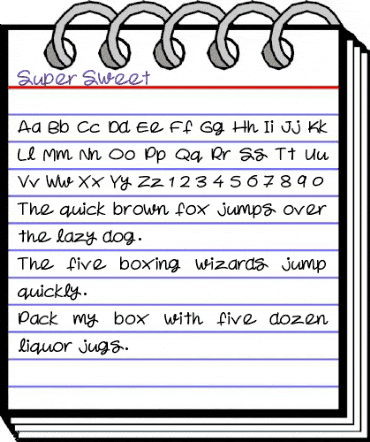 Super Sweet
Aa Bb Cc Dd Ee Ff Gg Hh Ii Jj Kk
Ll Mm Nn Oo Pp Qq Rr Ss Tt Uu
Vv Ww Xx Yy Zz 1 2 3 4 5 6 7 8 9 0
The quick brown fox jumps over
the lazy dog.
The five boxing wizards jump
quickly.
Pack my box with five dozen
liquor jugs.